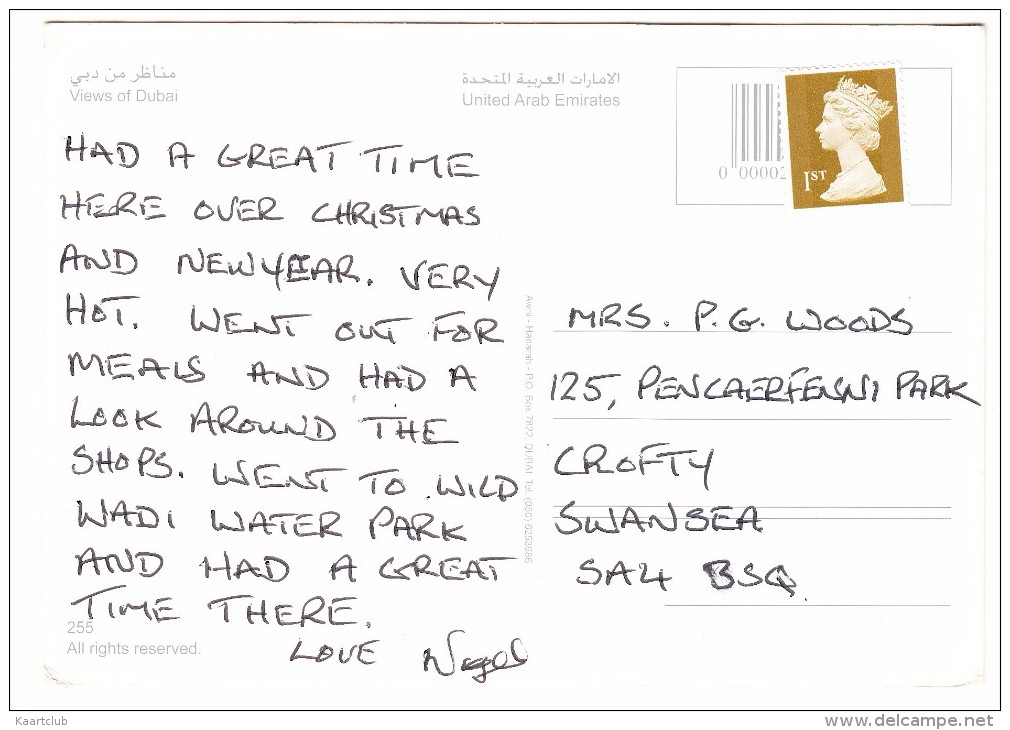 مناظر من دبي
Views of Dubai
الامارات العربية المتحدة
United Arab Emirates
0 00002
1ST
HAD A GREAT TIME
HERE OVER CHRISTMAS
AND NEWYEAR. VERY
HOT. WENT OUT FOR
MEALS AND HAD A
LOOK AROUND THE
SHOPS. WENT TO WILD
WADI WATER PARK
AND HAD A GREAT
TIME THERE.
LOVE Nigel
255
All rights reserved.
P.O. Box 7822 DUBAI Tel. (050)
MRS. P.G. WOODS
125, PENCAERFENNI PARK
CROFTY
SWANSEA
SA4
Kaartclub
www.delcampe.net